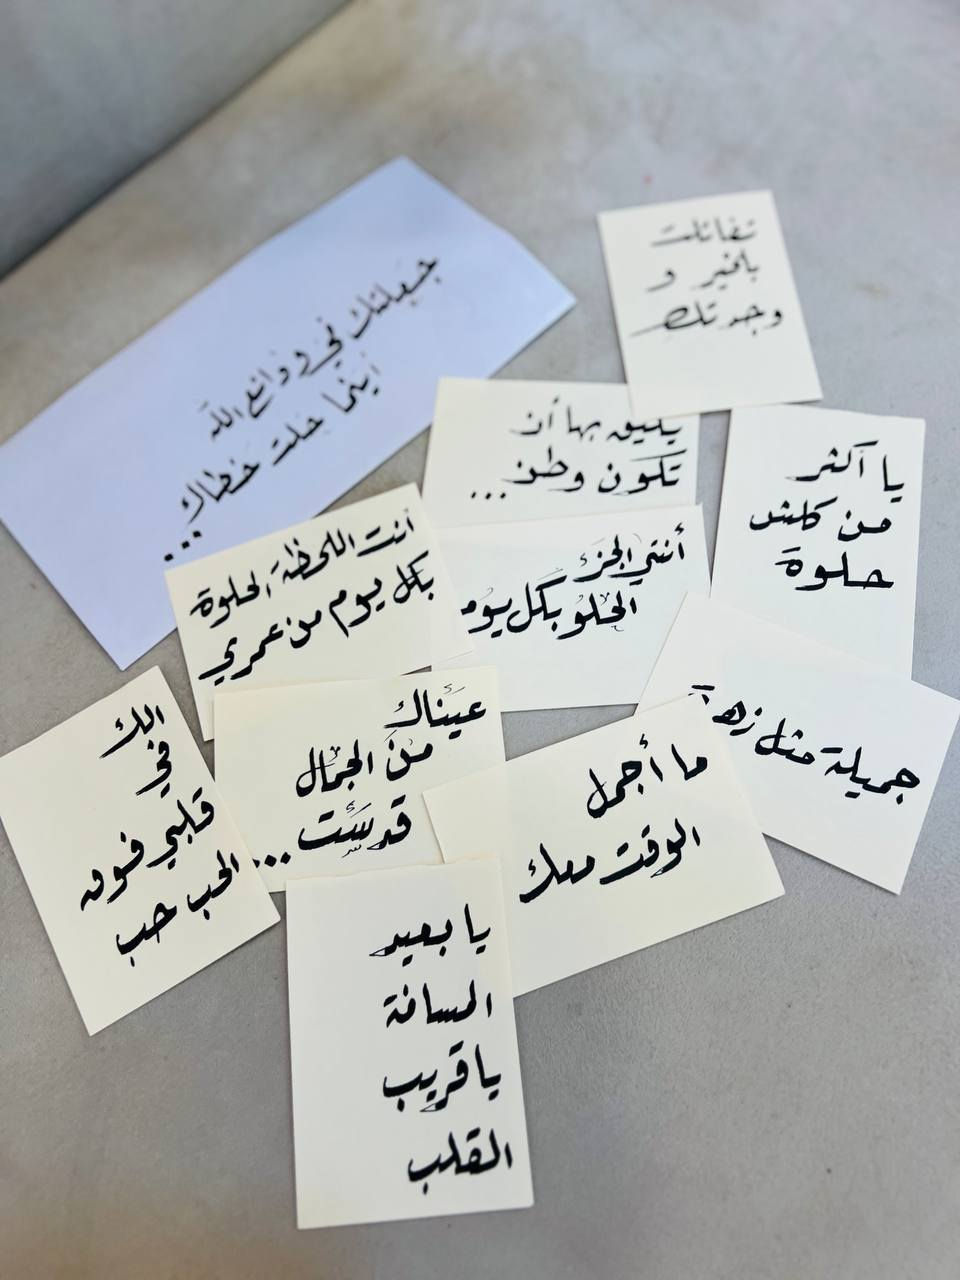 جميلتك في ودائع الله
أينما حلت خطاك...
تفائلت
بالخير و
وجدتك
يليق بها أن
تكون وطن...
يا أكثر
من كلش
حلوة
أنت اللحظة الحلوة
بكل يوم من عمري
أنتي الجزء
الحلو بكل يوم
جميلة مثل زهرة
الك
في
قلبي فوق
الحب حب
عيناك
من الجمال
قدست...
ما أجمل
الوقت معك
يا بعيد
المسافة
يا قريب
القلب